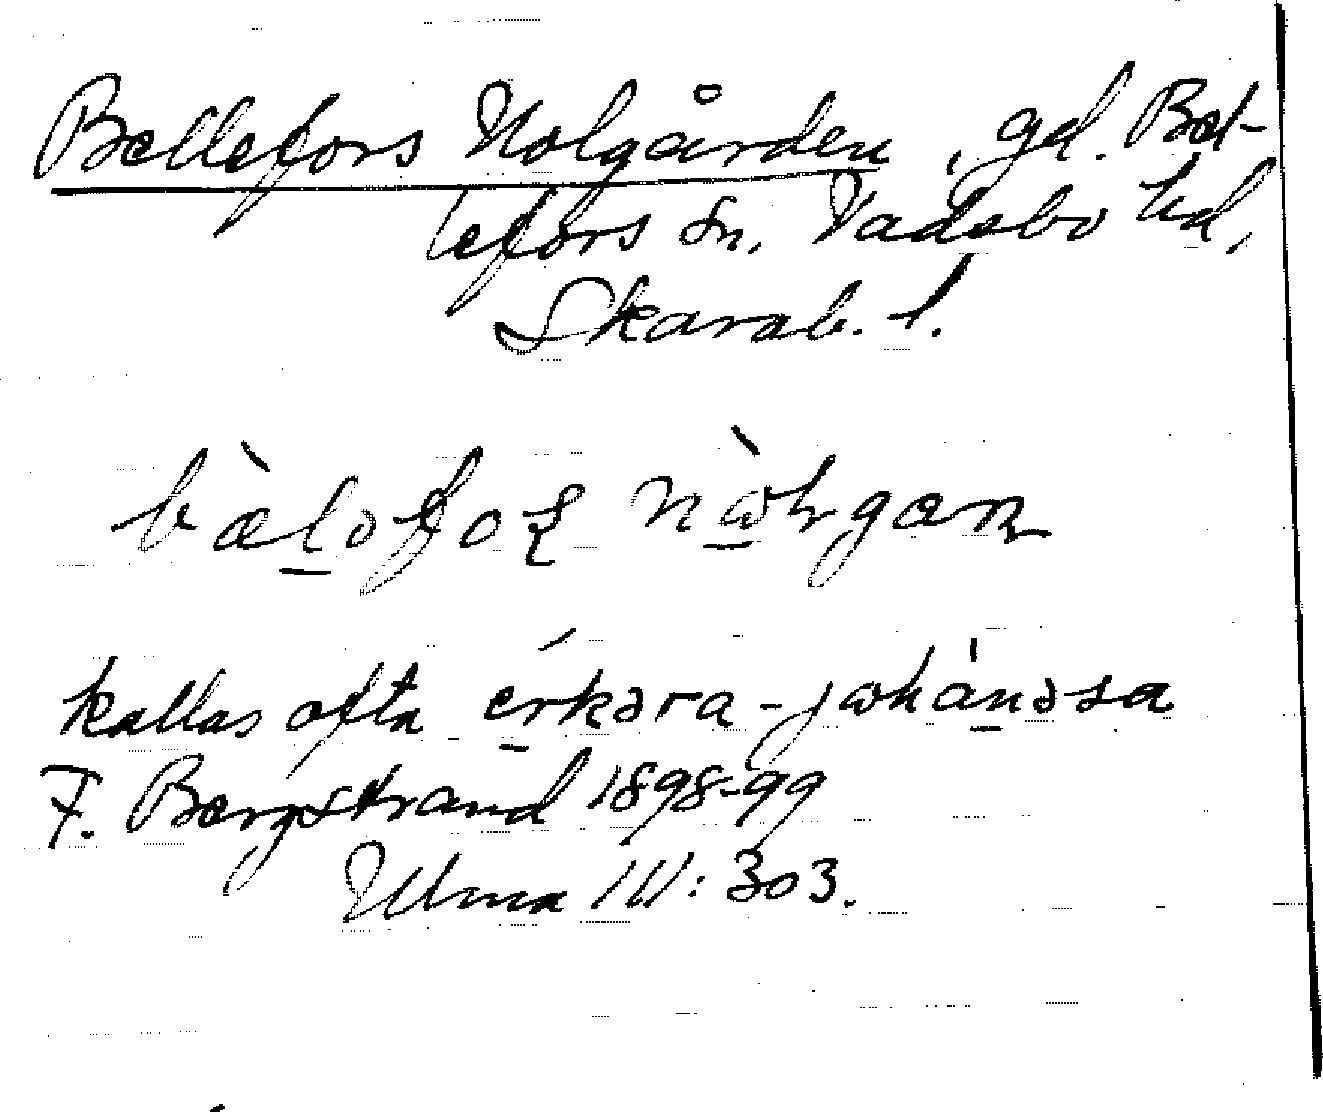 Bellefors Nolgården, gd. Bel-
lefors sn, Vadsbo hd,
Skarab. l.
bæ̀ləfoʂ nɷ̀lgaɳ
kallas ofta érkəra-jɷhánəsa
F. Bergstrand 1898-99
Ulma 111:303.